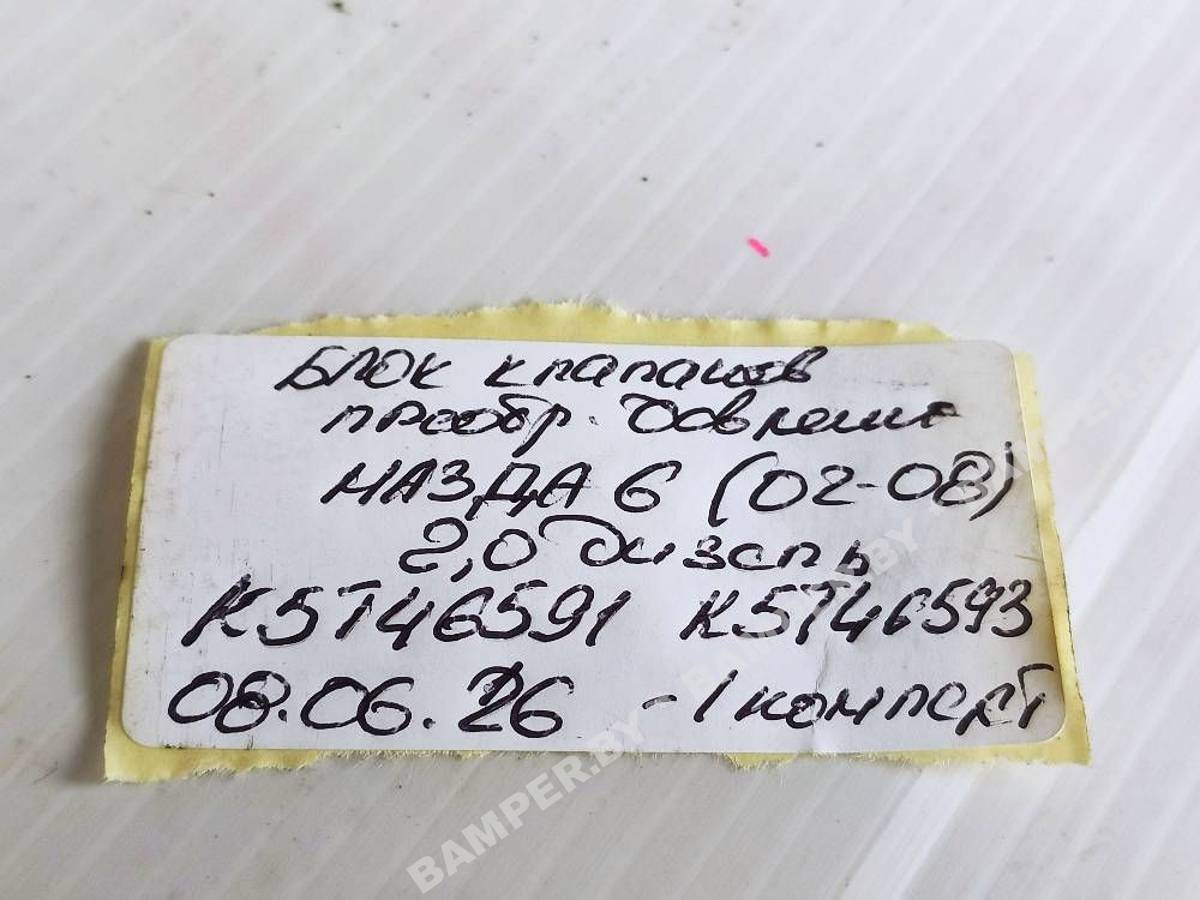 Блок клапанов
преобр. давления
МАЗДА 6 (02-08)
2,0 дизель
К5Т46591 К5Т46593
08.06.26 - 1 комплект
BAMPER.BY
BAMPER.BY